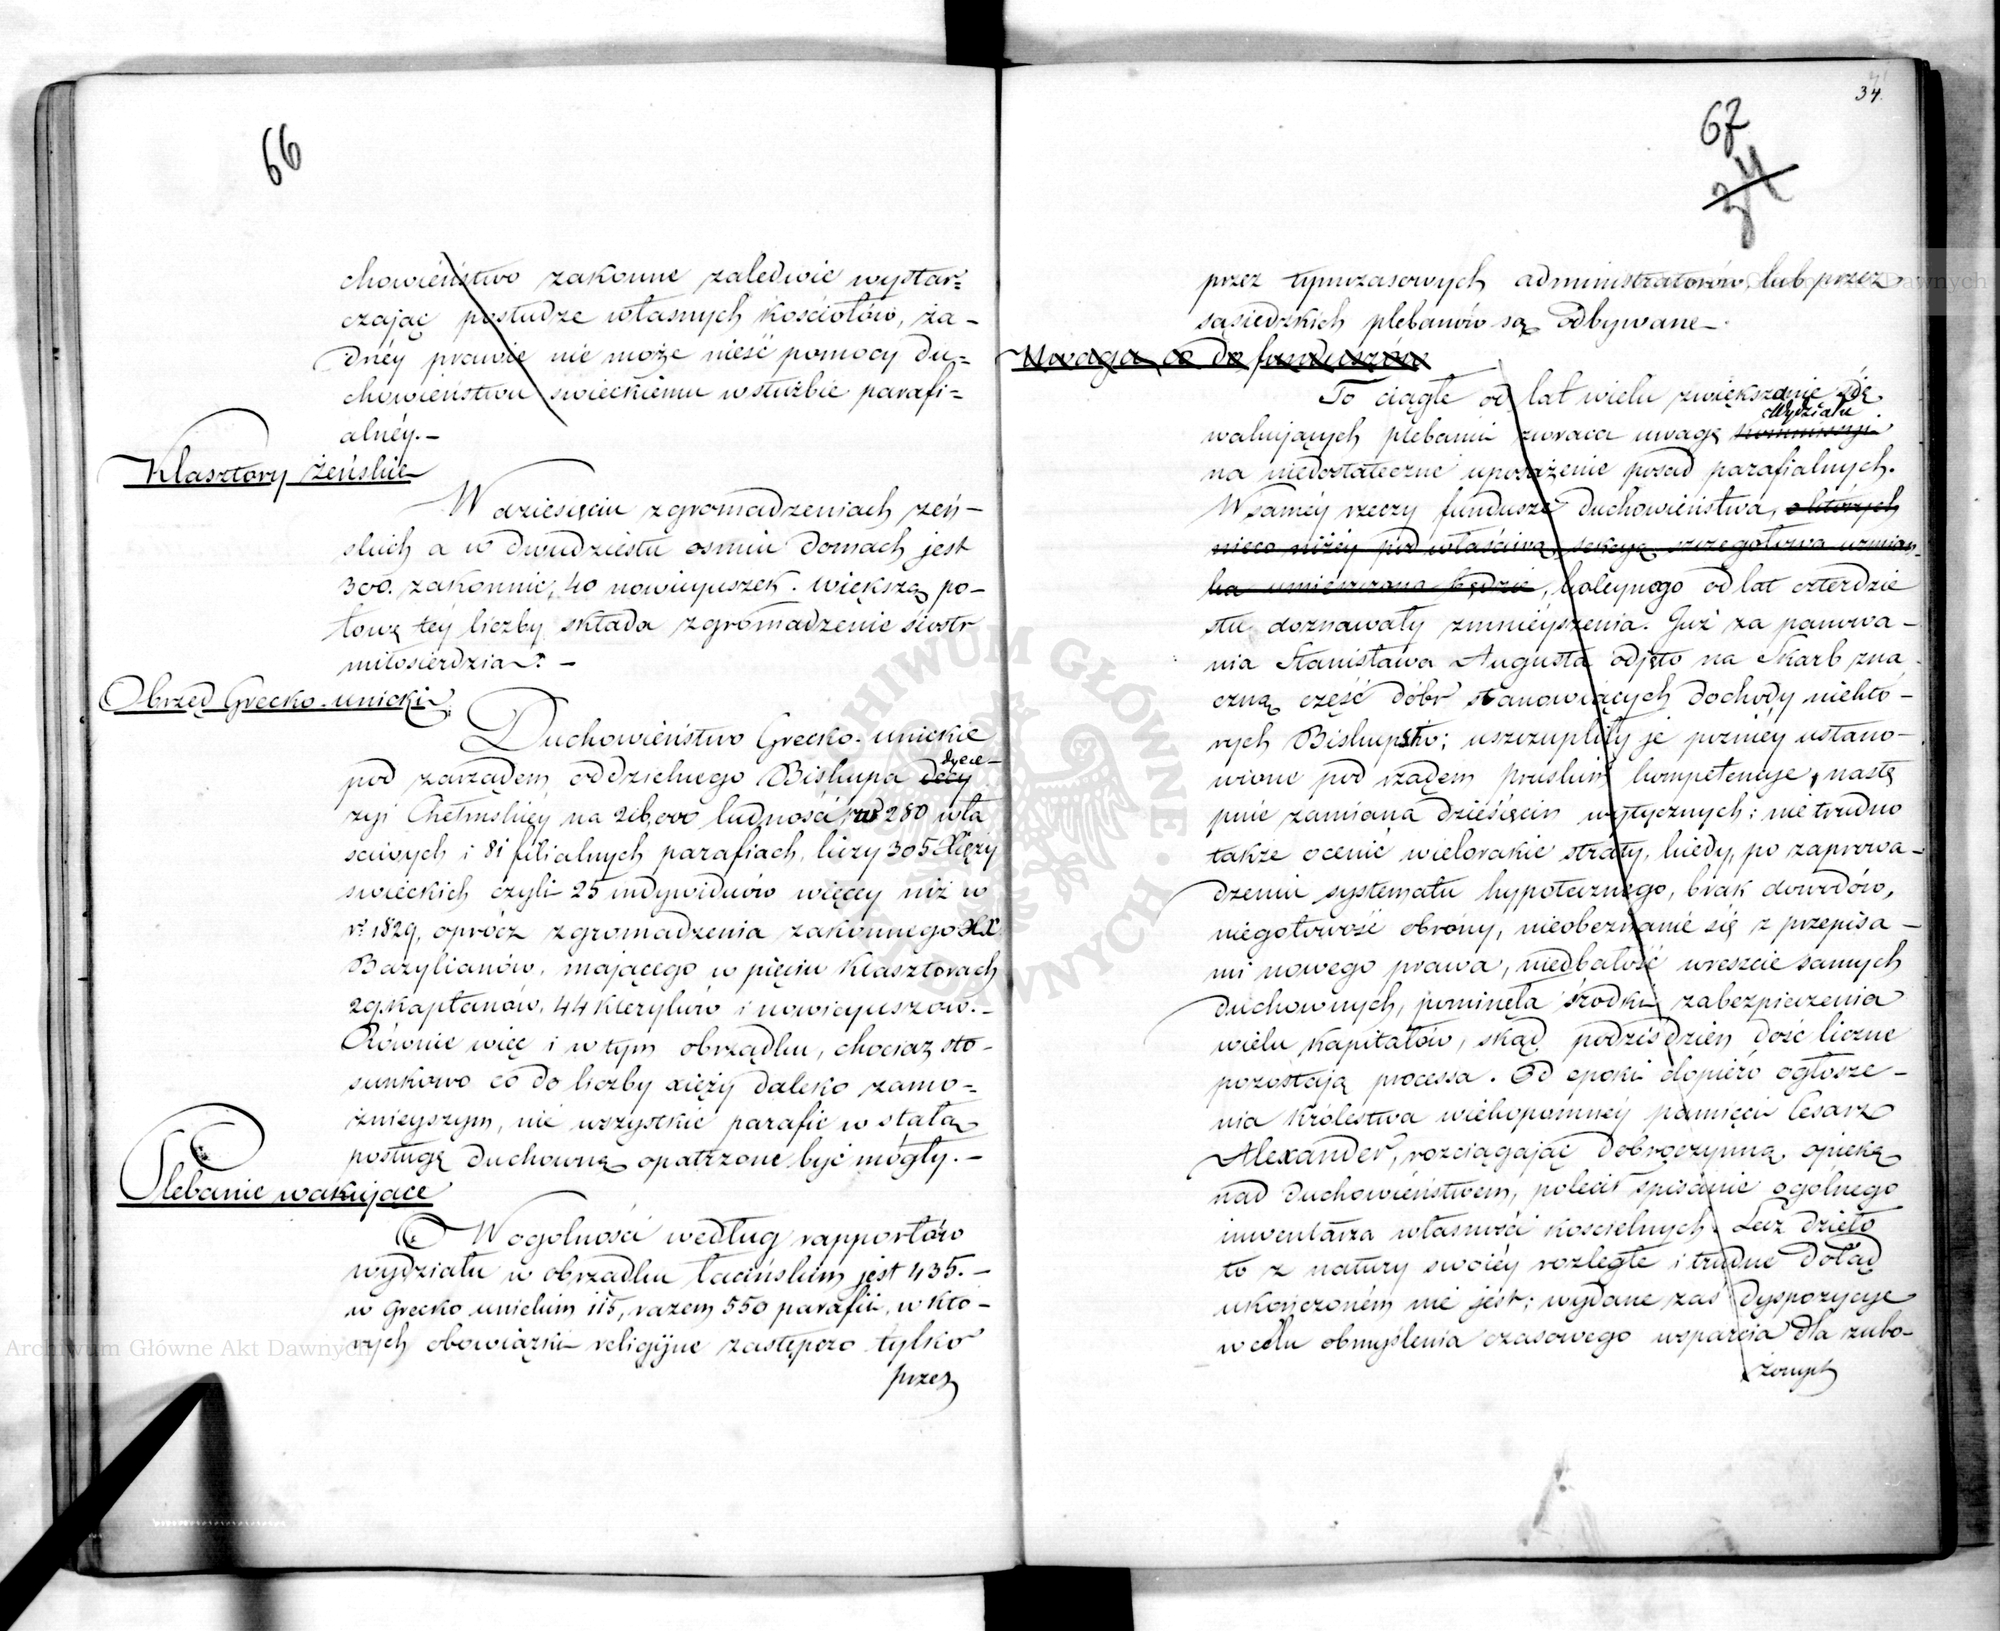 66
chowieństwo zakonne zaledwie wystar=
czając posłudze własnych kościołów, ża-
dnéy prawie nie może nieść pomocy du=
chowieństwu świeckiemu w służbie parafi=
alnéy.-
Klasztory żeńskie
W dziesięciu zgromadzeniach żeń-
skich a w dwudziestu osmiu domach jest
300. zakonnic, 40 nowicyuszek. większą po-
łowę téy liczby składa zgromadzenie siostr
miłosierdzia. -
Obrzęd Grecko-unicki
Duchowieństwo Grecko-unickie
pod zarządem oddzielnego Biskupa decy dyece-
zyi Chełmskiéy na 216,000 ludności w 280 wła
sciwych i 81 filialnych parafiach, liczy 305 Xięży
swieckich czyli 25 indywiduów więcéy niż w
r. 1829, oprócz zgromadzenia zakonnego XX
Bazylianów, mającego w pięciu klasztorach
29. kapłanów, 44 kleryków i nowicyuszów.-
Równie więc i w tym obrządku, chociaż sto-
sunkowo co do liczby xięży daleko zamo=
żnieyszym, nie wszystkie parafie w stałą
posługę duchowną opatrzone być mogły.-
Plebanie wakujące
W ogolności według rapportów
wydziału w obrzadku łacińskim jest 435.-
w Grecko unickim 115, razem 550 parafii, w któ-
rych obowiązki religijne zastępczo tylko
przez
34
67
34
przez tymczasowych administratorów, lub przez
sąsiedzkich plebanów są odbywane.
Uwaga co do funduszów
To ciągłe od lat wielu zwiększanie się
wakujących plebanii zwraca uwagę kommissyi Wydziału
na niedostateczne uposażenie posad parafialnych.
W saméy rzeczy fundusze duchowieństwa, o których
nieco niżéy pod właściwą sekcyą szczegółowa wzmian-
ka umieszczona będzie, koleyno od lat czterdzie
stu doznawały zmnieyszenia. Już za panowa-
nia Stanisława Augusta odjęto na skarb zna-
czną część dóbr stanowiących dochody niektó-
rych Biskupstw; uszczupliły je pózniéy ustano-
wione pod rządem pruskim kompetencye, nastę
pnie zamiana dziesięcin wytycznych; nie trudno
także ocenić wielorakie straty, kiedy, po zaprowa-
dzeniu systematu hypotecznego, brak dowodów,
niegotowość obrony, nieobeznanie się z przepisa-
mi nowego prawa, niedbałość wreszcie samych
duchownych, pominęła środki zabezpieczenia
wielu kapitałów, skąd podziśdzień dość liczne
pozostają processa. Od epoki dopiéro ogłosze-
nia Królestwa wiekopomnéy pamięci Cesarz
Alexander, rozciągając dobroczynną opiekę
nad duchowieństwem, polecił spisanie ogólnego
inwentarza własności kościelnych. Lecz dzieło
to z natury swoiéy rozległe i trudne dotąd
ukończoném nie jest; wydane zaś dyspozycye
w celu obmyślenia czasowego wsparcia dla zubo-
żonych
ARCHIWUM GŁÓWNE AKT DAWNYCH
Archiwum Główne Akt Dawnych
Archiwum Główne Akt Dawnych